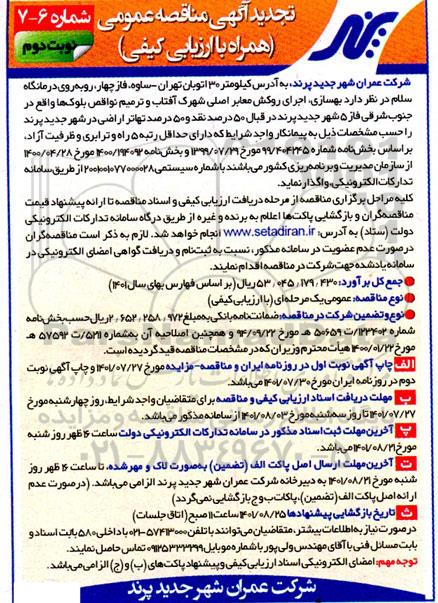 تجدید آگهی مناقصه عمومی
(همراه با ارزیابی کیفی)
شماره ۶-۷
نوبت دوم
پرند
شرکت عمران شهر جدید پرند، به آدرس کیلومتر ۳۰ اتوبان تهران - ساوه، فاز چهار، روبه‌روی درمانگاه
سلام در نظر دارد بهسازی، اجرای روکش معابر اصلی شهرک آفتاب و ترمیم نواقص بلوک‌ها واقع در
جنوب شرقی فاز ۵ شهر جدید پرند در قبال ۵۰ درصد نقد و ۵۰ درصد تهاتر اراضی در شهر جدید پرند
را حسب مشخصات ذیل به پیمانکار واجد شرایط که دارای حداقل رتبه ۵ راه و ترابری و ظرفیت آزاد،
بر اساس بخش‌نامه شماره ۹۹/۴۰۴۲۴۵ مورخ ۱۳۹۹/۰۷/۲۹ و بخش‌نامه ۱۴۰۰/۱۹۴۰۹۲ مورخ ۱۴۰۰/۰۴/۲۸
از سازمان مدیریت و برنامه ریزی کشور می‌باشند با شماره سیستمی ۲۰۰۱۰۰۱۰۷۷۰۰۰۰۲۸ از طریق سامانه
تدارکات الکترونیکی واگذار نماید.
کلیه مراحل برگزاری مناقصه از مرحله دریافت ارزیابی کیفی و اسناد مناقصه تا ارائه پیشنهاد قیمت
مناقصه‌گران و بازگشایی پاکت‌ها اعلام به برنده و غیره از طریق درگاه سامانه تدارکات الکترونیکی
دولت (ستاد) به آدرس: www.setadiran.ir انجام خواهد شد. لازم به ذکر است مناقصه‌گران
در صورت عدم عضویت در سامانه مذکور، نسبت به ثبت‌نام و دریافت گواهی امضای الکترونیکی در
سامانه یاد شده جهت شرکت در مناقصه اقدام نمایند.
جمع کل برآورد: ۵۳،۰۴۵،۱۷۹،۴۳۰ ریال (بر اساس فهارس بهای سال ۱۴۰۱)
نوع مناقصه: عمومی یک مرحله‌ای (با ارزیابی کیفی)
نوع و تضمین شرکت در مناقصه: ضمانت‌نامه بانکی به مبلغ ۲،۶۵۲،۲۵۸،۹۷۲ ریال حسب بخش‌نامه
شماره ۱۲۳۴۰۲/ت ۵۰۶۵۹ هـ مورخ ۹۴/۰۹/۲۲ و همچنین اصلاحیه آن به‌شماره ۵۲۱۱/ت ۵۷۵۹۲ هـ
مورخ ۱۴۰۰/۰۱/۲۲ هیأت محترم وزیران که در مشخصات مناقصه قید گردیده است.
الف چاپ آگهی نوبت اول در روزنامه ایران و مناقصه-مزایده مورخ ۱۴۰۱/۰۷/۲۷ و چاپ آگهی نوبت
دوم در روزنامه ایران مورخ ۱۴۰۱/۰۷/۳۰ می‌باشد.
ب مهلت دریافت اسناد ارزیابی کیفی و مناقصه برای متقاضیان واجد شرایط، روز چهارشنبه مورخ
۱۴۰۱/۰۷/۲۷ تا روز سه‌شنبه مورخ ۱۴۰۱/۰۸/۰۳ از سامانه مذکور می‌باشد.
پ آخرین مهلت ثبت اسناد مذکور در سامانه تدارکات الکترونیکی دولت ساعت ۱۶ ظهر روز شنبه
مورخ ۱۴۰۱/۰۸/۲۱ می‌باشد.
ت آخرین مهلت ارسال اصل پاکت الف (تضمین) به‌صورت لاک و مهر شده، تا ساعت ۱۶ ظهر روز
شنبه مورخ ۱۴۰۱/۰۸/۲۱ به دبیرخانه شرکت عمران شهر جدید پرند الزامی می‌باشد. (در صورت عدم
ارائه اصل پاکت الف (تضمین)، پاکات ب و ج بازگشایی نمی‌گردد)
ث تاریخ بازگشایی پیشنهادها ۱۴۰۱/۰۸/۲۵ ساعت ۱۱ صبح (اتاق جلسات)
در صورت نیاز به اطلاعات بیشتر، متقاضیان می‌توانند با تلفن ۵۷۴۱۳۰۰۰-۰۲۱ با داخلی ۵۸۰ بابت اسناد و
بابت مسائل فنی با آقای مهندس ولی‌پور با شماره موبایل ۰۹۱۲۵۳۳۳۲۹۹ تماس حاصل نمایند.
توجه مهم: امضای الکترونیکی اسناد ارزیابی کیفی و پیشنهاد پاکت‌های (ب) و (ج) الزامی می‌باشد.
شرکت عمران شهر جدید پرند